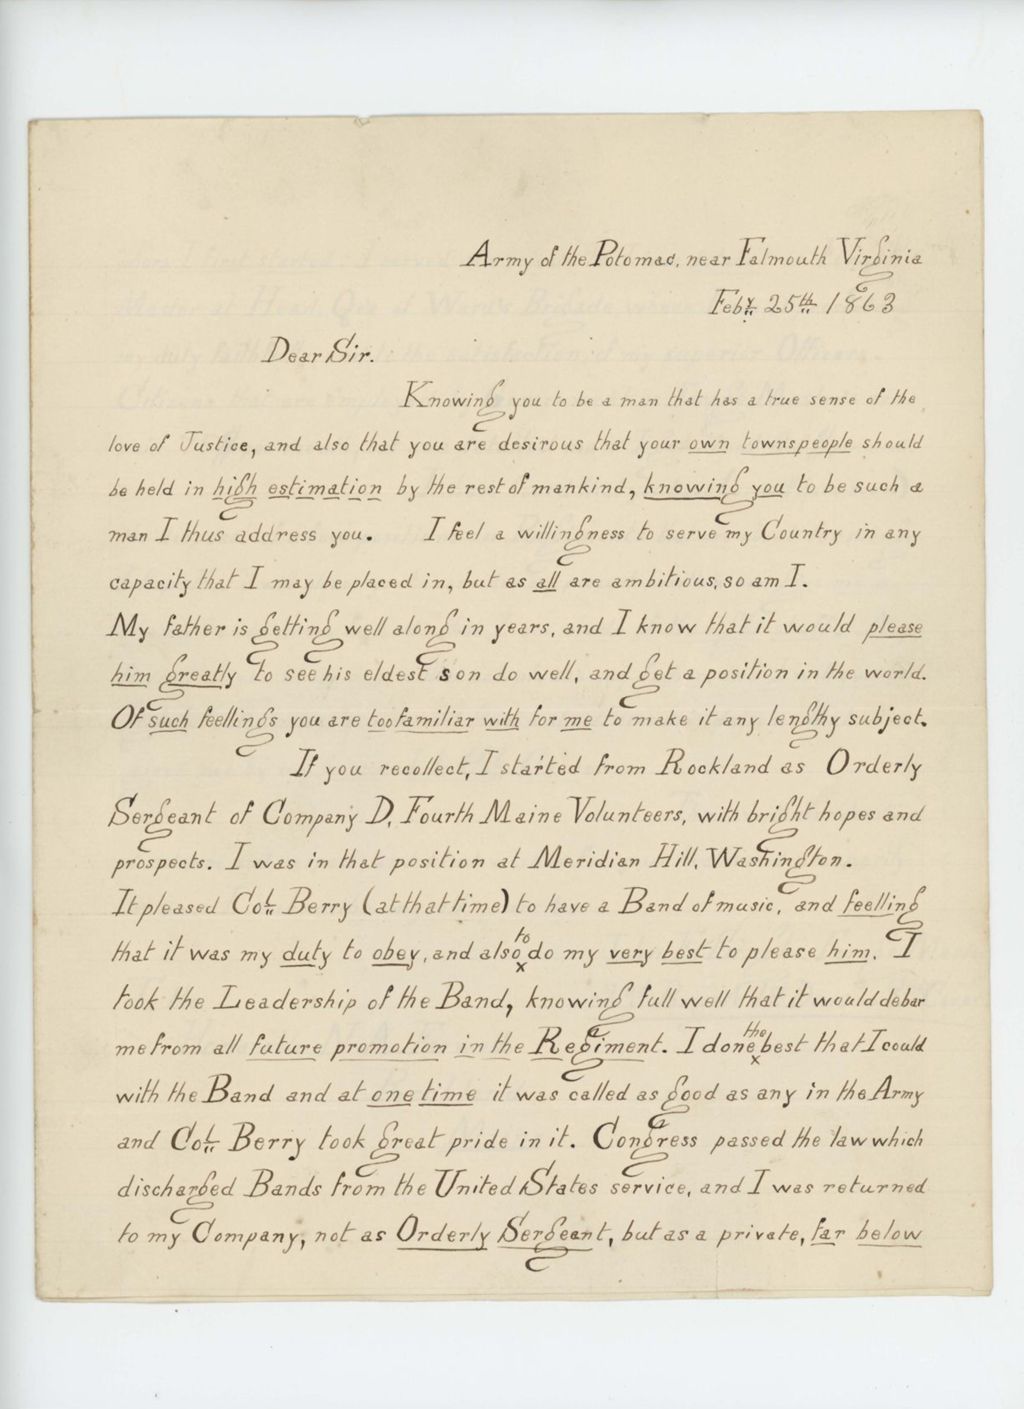 Army of the Potomac, near Falmouth Virginia
Feby 25th 1863
Dear Sir.
Knowing you to be a man that has a true sense of the
love of Justice, and also that you are desirous that your own townspeople should
be held in high estimation by the rest of mankind, knowing you to be such a
man I thus address you. I feel a willingness to serve my Country in any
capacity that I may be placed in, but as all are ambitious, so am I.
My father is getting well along in years, and I know that it would please
him greatly to see his eldest son do well, and get a position in the world.
Of such feellings you are too familiar with for me to make it any lengthy subject.
If you recollect, I started from Rockland as Orderly
Sergeant of Company D, Fourth Maine Volunteers, with bright hopes and
prospects. I was in that position at Meridian Hill, Washington.
It pleased Col. Berry (at that time) to have a Band of music, and feelling
that it was my duty to obey, and also to do my very best to please him. I
took the Leadership of the Band, knowing full well that it would debar
me from all future promotion in the Regiment. I done the best that I could
with the Band and at one time it was called as good as any in the Army
and Col. Berry took great pride in it. Congress passed the law which
discharged Bands from the United States service, and I was returned
to my Company, not as Orderly Sergeant, but as a private, far below